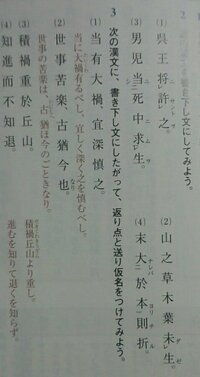 書き下し文にしてみよう。
(1) 呉王将許之。
(2) 山之草木葉未生。
(3) 男児当死中求生。
(4) 末大於本則折。
3 次の漢文に、書き下し文にしたがって、返り点と送り仮名をつけてみよう。
(1) 当有大禍、宜深慎之。
当に大禍有るべし、宜しく深く之を慎むべし。
(2) 世事苦楽、古猶今也。
世事の苦楽は、古猶ほ今のごときなり。
(3) 積禍重於丘山。
積禍丘山より重し。
(4) 知進而不知退。
進むを知りて退くを知らず。